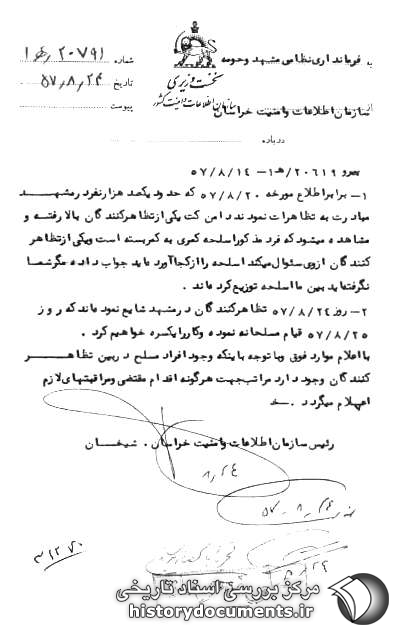 به فرمانداری نظامی مشهد و حومه
نخست وزیری
سازمان اطلاعات و امنیت کشور
شماره ۲۰۷۹۱/ ۱هـ
تاریخ ۵۷٫۸٫۲۴
پیوست
از سازمان اطلاعات و امنیت خراسان
درباره
پیرو ۲۰۶۱۹/ هـ۱-۵۷/۸/۱۴
۱- برابر اطلاع مورخه ۵۷/۸/۲۰ که حدود یکصد هزار نفر در مشهد
مبادرت به تظاهرات نمودند دامن کت یکی از تظاهرکنندگان بالا رفته و
مشاهده میشود که فرد مذکور اسلحه کمری به کمر بسته است و یکی از تظاهر
کنندگان از وی سئوال میکند اسلحه را از کجا آورده‌اید جواب داده مگر شما
نگرفته‌اید بین ما اسلحه توزیع کرده‌اند .
۲- روز ۵۷/۸/۲۴ تظاهرکنندگان در مشهد شایع نموده‌اند که روز
۵۷/۸/۲۵ قیام مسلحانه نموده و کار را یکسره خواهیم کرد .
با اعلام موارد فوق و با توجه باینکه وجود افراد مسلح در بین تظاهر
کنندگان وجود دارد مراتب جهت هرگونه اقدام مقتضی و مراقبتهای لازم
اعلام میگردد .
رئیس سازمان اطلاعات و امنیت خراسان . شیخان
۸٫۲۴
۵۷-۸-۲۴
۳۱۲۷۰
۸٫۲۴
مرکز بررسی اسناد تاریخی
historydocuments.ir